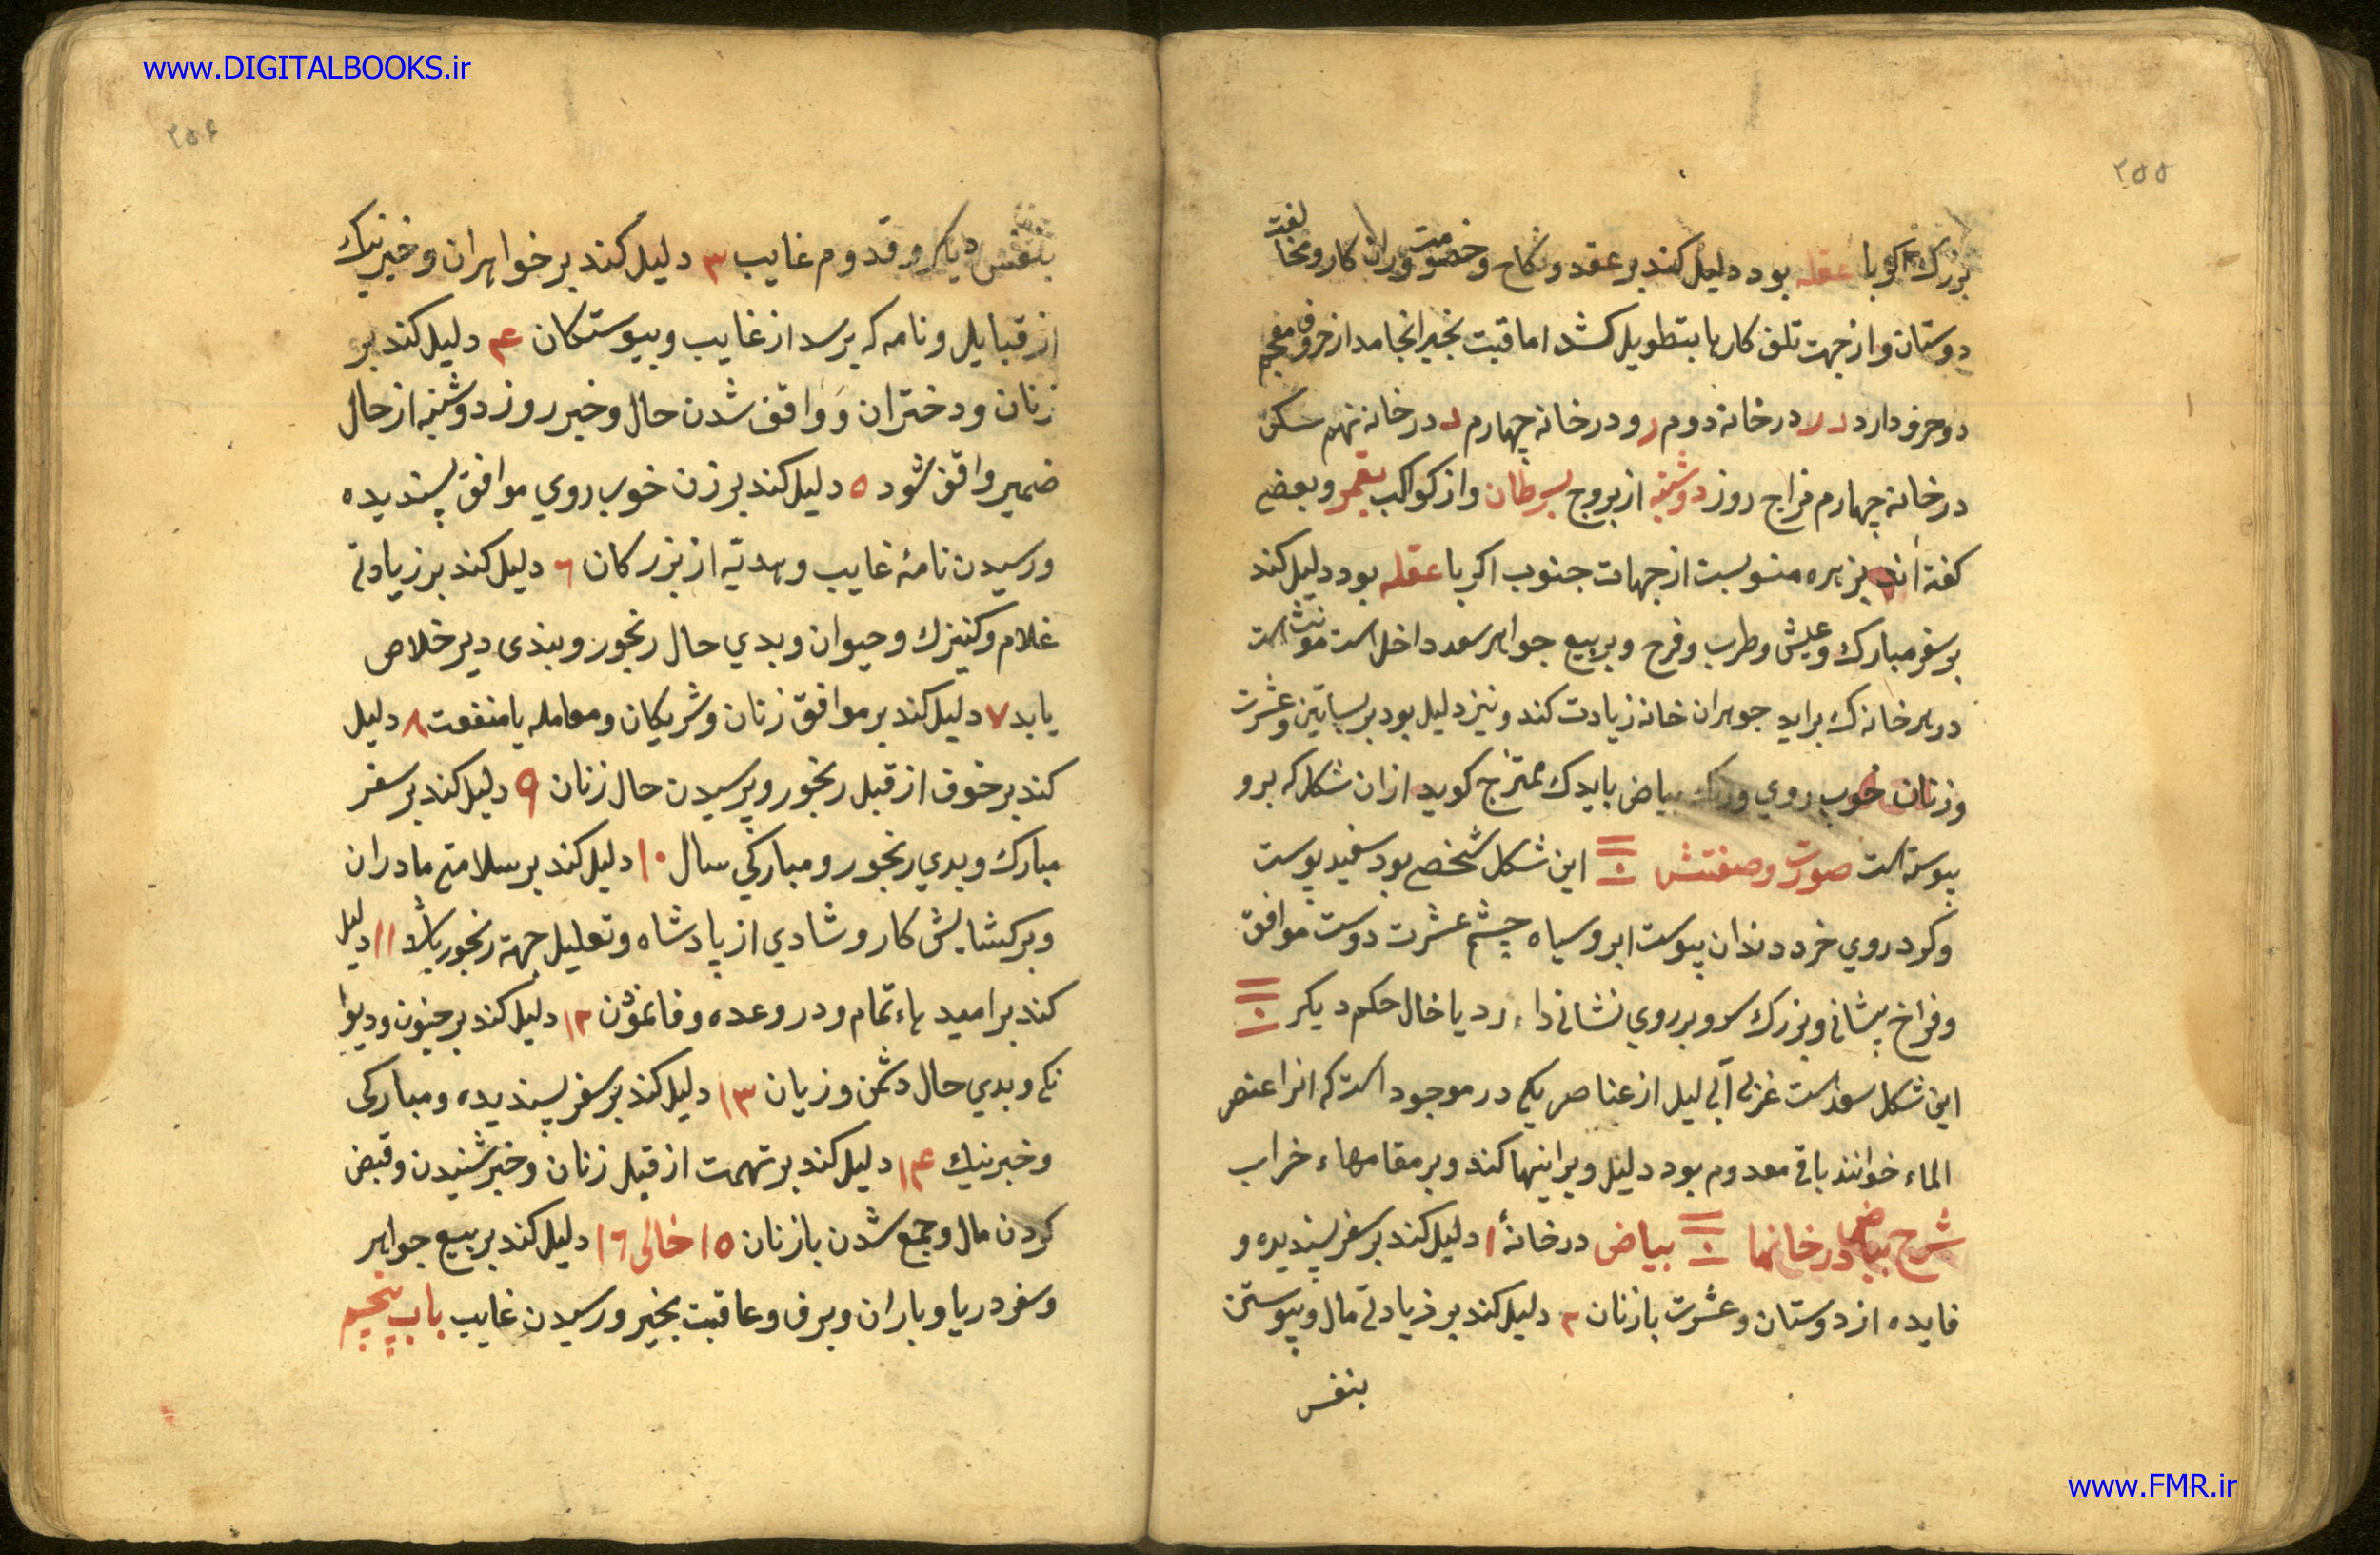 www.DIGITALBOOKS.ir
۲۵۵
بزرك اكر با عقله بود دليل كند بر عقد و نكاح و خصومت وران كار و مخالفت
دوستان و از جهت تلف كارها بتطويل كشد اما قبت بخير انجامد از حروف معجم
دو حرف دارد در درخانه دوم ر و درخانه چهارم د درخانه نهم سكن
درخانه چهارم مزاج روز دوشنبه از بروج بسرطان و از كواكب بقمر و بعضي
كفته اند بزهره منسوبست از جهات جنوب اكر با عقله بود دليل كند
بر سفر مبارك و عيش و طرب و فرح و بر بيع جواهر سعد داخل است مونث است
در هر خانه ك برايد جوهر ان خانه زيادت كند و نيز دليل بود بر بساتين و عشرت
و زنان خوب روي و رنك بياض بايد ك ممتزج كويد ازان شكل كه برو
پيوسته است صورت و صفتش این شكل شخصي بود سفيد پوست
و كرد روي خرد دندان پيوست ابرو سياه چشم عشرت دوست موافق
و فراخ پيشاني و بزرك سر و بر روي نشاني دارد يا خال حكم ديكر
اين شكل سعدست غربي آبي ليل از عناصر يكي در موجود است كه انرا عنصر
الماء خوانند باقي معدوم بود دليل ويرانيها كند و بر مقامهاء خراب
شرح بياض درخانها بياض درخانهٔ ۱ دليل كند بر سفر پسنديده و
فايده از دوستان و عشرت با زنان ۲ دليل كند بر زيادتي مال و پيوستن
بنفس
۲۵۶
بنفس ديكر و قدوم غايب ۳ دليل كند بر خواهران و خبر نيك
از قبايل و نامه كه برسد از غايب و پيوستكان ۴ دليل كند بر
زنان و دختران و واقف شدن حال و خبر روز دوشنبه از حال
ضمير واقف شود ۵ دليل كند بر زن خوب روي موافق پسنديده
و رسيدن نامهٔ غايب و هديّه از بزركان ۶ دليل كند بر زيادتي
غلام و كنيزك و حيوان و بدي حال رنجور و بندى دير خلاص
يابد ۷ دليل كند بر موافق زنان و شريكان و معامله با منفعت ۸ دليل
كند بر خوف از قبل رنجور و پرسيدن حال زنان ۹ دليل كند بر سفر
مبارك و بدي رنجور و مباركي سال ۱۰ دليل كند بر سلامتي مادران
و بر كشايش كار و شادي از پادشاه و تعليل جهة رنجور باشد ۱۱ دليل
كند بر اميد هاء تمام و در وعده وفا نمودن ۱۲ دليل كند بر جنون و ديوا
نكي و بدي حال دشمن و زيان ۱۳ دليل كند بر سفر پسنديده و مباركى
و خبر نيك ۱۴ دليل كند بر تهمت از قبل زنان و خبر شنيدن و قبض
كردن مال و جمع شدن با زنان ۱۵ خالى ۱۶ دليل كند بر بيع جواهر
و سفر دريا و باران و برف و عاقبت بخير و رسيدن غايب باب پنجم
www.FMR.ir